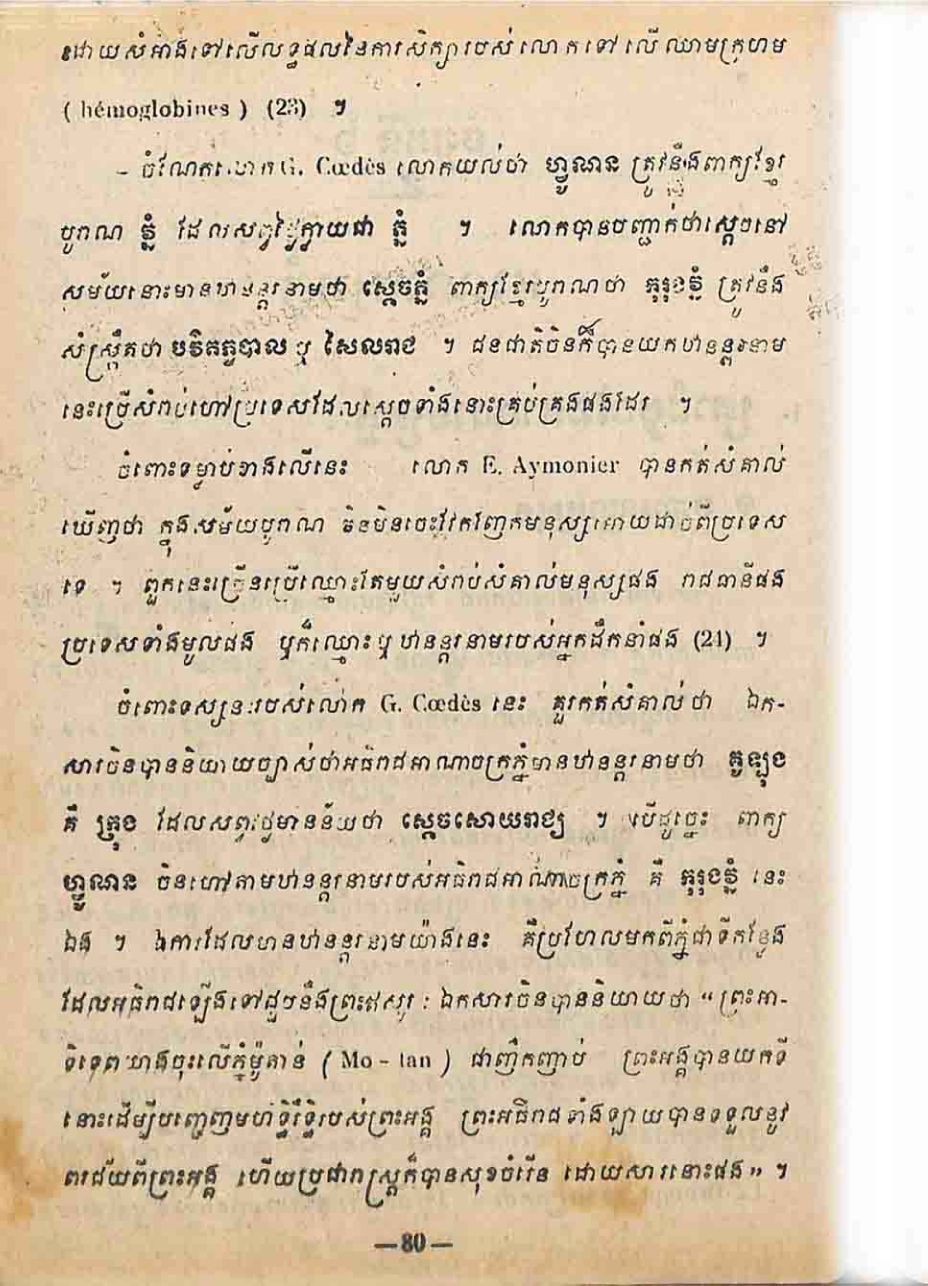 ដោយសំអាងទៅលើលទ្ធផលនៃការសិក្សារបស់លោកទៅលើឈាមក្រហម
( hémoglobines ) (23) ។
- ចំណែកលោក G. Cœdès លោកយល់ថា ហ្វូណន ត្រូវនឹងពាក្យខ្មែរ
បូរាណ ប្នំ ដែលសព្វថ្ងៃក្លាយជា ភ្នំ ។ លោកបានបញ្ជាក់ថាស្តេចនៅ
សម័យនោះមានឋានន្តរនាមថា ស្តេចភ្នំ ពាក្យខ្មែរបូរាណថា កុរុងប្នំ ត្រូវនឹង
សំស្ក្រឹតថា បវ៌តភូបាល ឬ សៃលរាជ ។ ជនជាតិចិនក៏បានយកឋានន្តរនាម
នេះប្រើសំរាប់ហៅប្រទេសដែលស្តេចទាំងនោះគ្រប់គ្រងផងដែរ ។
ចំពោះទម្លាប់ខាងលើនេះ លោក E. Aymonier បានកត់សំគាល់
ឃើញថា ក្នុងសម័យបូរាណ ចិនមិនចេះវែកញែកមនុស្សអោយដាច់ពីប្រទេស
ទេ ។ ពួកនេះច្រើនប្រើឈ្មោះតែមួយសំរាប់សំគាល់មនុស្សផង រាជធានីផង
ប្រទេសទាំងមូលផង ឬក៏ឈ្មោះ ឬ ឋានន្តរនាមរបស់អ្នកដឹកនាំផង (24) ។
ចំពោះទស្សនៈរបស់លោក G. Cœdès នេះ គួរកត់សំគាល់ថា ឯក-
សារចិនបាននិយាយច្បាស់ថាអធិរាជអាណាចក្រភ្នំមានឋានន្តរនាមថា គូឡុង
គឺ ក្រុង ដែលសព្វថ្ងៃមានន័យថា ស្តេចសោយរាជ្យ ។ បើដូច្នេះ ពាក្យ
ហ្វូណន ចិនហៅតាមឋានន្តរនាមរបស់អធិរាជអាណាចក្រភ្នំ គឺ កុរុងប្នំ នេះ
ឯង ។ ឯការដែលមានឋានន្តរនាមយ៉ាងនេះ គឺប្រហែលមកពីភ្នំជាទីកន្លែង
ដែលអធិរាជឡើងទៅជួបនឹងព្រះឥសូរ : ឯកសារចិនបាននិយាយថា “ ព្រះអា-
ទិទេពយាងចុះលើភ្នំម៉ូតាន់ ( Mo - tan ) ជាញឹកញាប់ ព្រះអង្គបានយកទី
នោះដើម្បីបញ្ចេញមហិទ្ធិរឹទ្ធិរបស់ព្រះអង្គ ព្រះអធិរាជទាំងឡាយបានទទួលនូវ
ពរជ័យពីព្រះអង្គ ហើយប្រជារាស្រ្តក៏បានសុខចំរើន ដោយសារនោះផង» ។
— 80 —